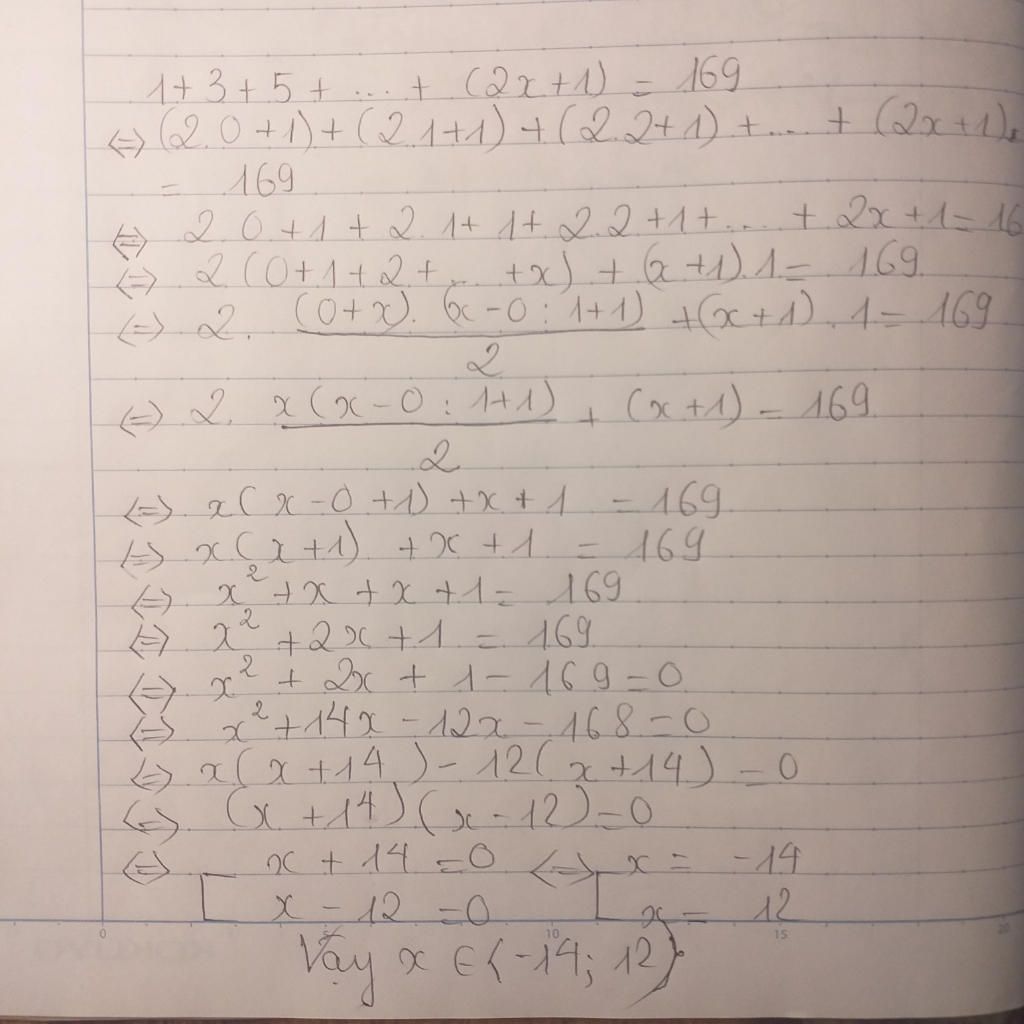 1+3+5+...+ (2x+1) = 169
<=> (2.0+1)+(2.1+1)+(2.2+1)+...+(2x+1)
= 169
<=> 2.0+1+2.1+1+2.2+1+...+2x+1=16
<=> 2(0+1+2+...+x) + (x+1).1= 169
<=> 2. (0+x).(x-0:1+1) +(x+1).1=169
2
<=> 2. x(x-0:1+1) + (x+1)=169
2
<=> x(x-0+1)+x+1 = 169
<=> x(x+1) +x+1 = 169
<=> x²+x+x+1= 169
<=> x²+2x+1 = 169
<=> x² + 2x + 1-169=0
<=> x²+14x-12x-168=0
<=> x(x+14)-12(x+14) =0
<=> (x+14)(x-12)=0
<=> [ x+14=0 <=> [ x= -14
x-12=0 x= 12
0 5 10 15 20
Vậy x ∈ {-14; 12}